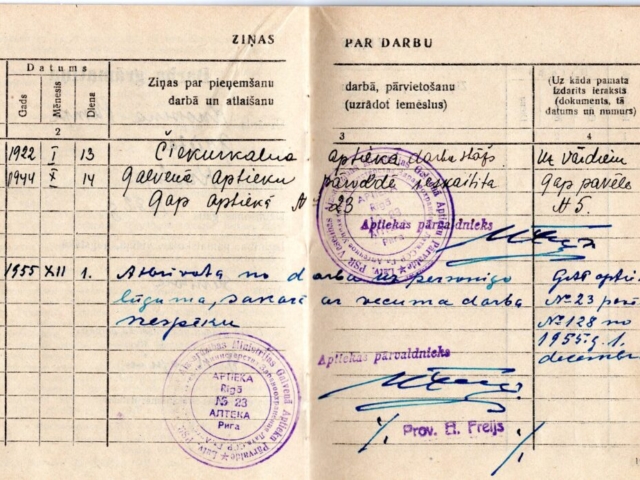 ZIŅAS PAR DARBU
Datums
Gads Mēnesis Diena
Ziņas par pieņemšanu darbā un atlaišanu
darbā, pārvietošanu (uzrādot iemēslus)
(Uz kāda pamata izdarīts ieraksts (dokuments, tā datums un numurs)
2 3 4
1922 I 13 Čiekurkalna aptiekā darba stāžs Uz vārdiem
1944 XI 14 Galvenā Aptieku pārvaldē ieskaitīta Gap pavēle
Gap aptiekā № 23 № 5.
Aptiekas pārvaldnieks
1955 XII 1. Atbrīvota no darba uz personīgo
lūgumu, sakarā ar vecuma darba № 23
nespēku № 128 no
1955. g. 1.
decembra
Aptiekas pārvaldnieks
АPTIEKA
Rīgā
№ 23
АПТЕКА
Рига
Prov. H. Freijs